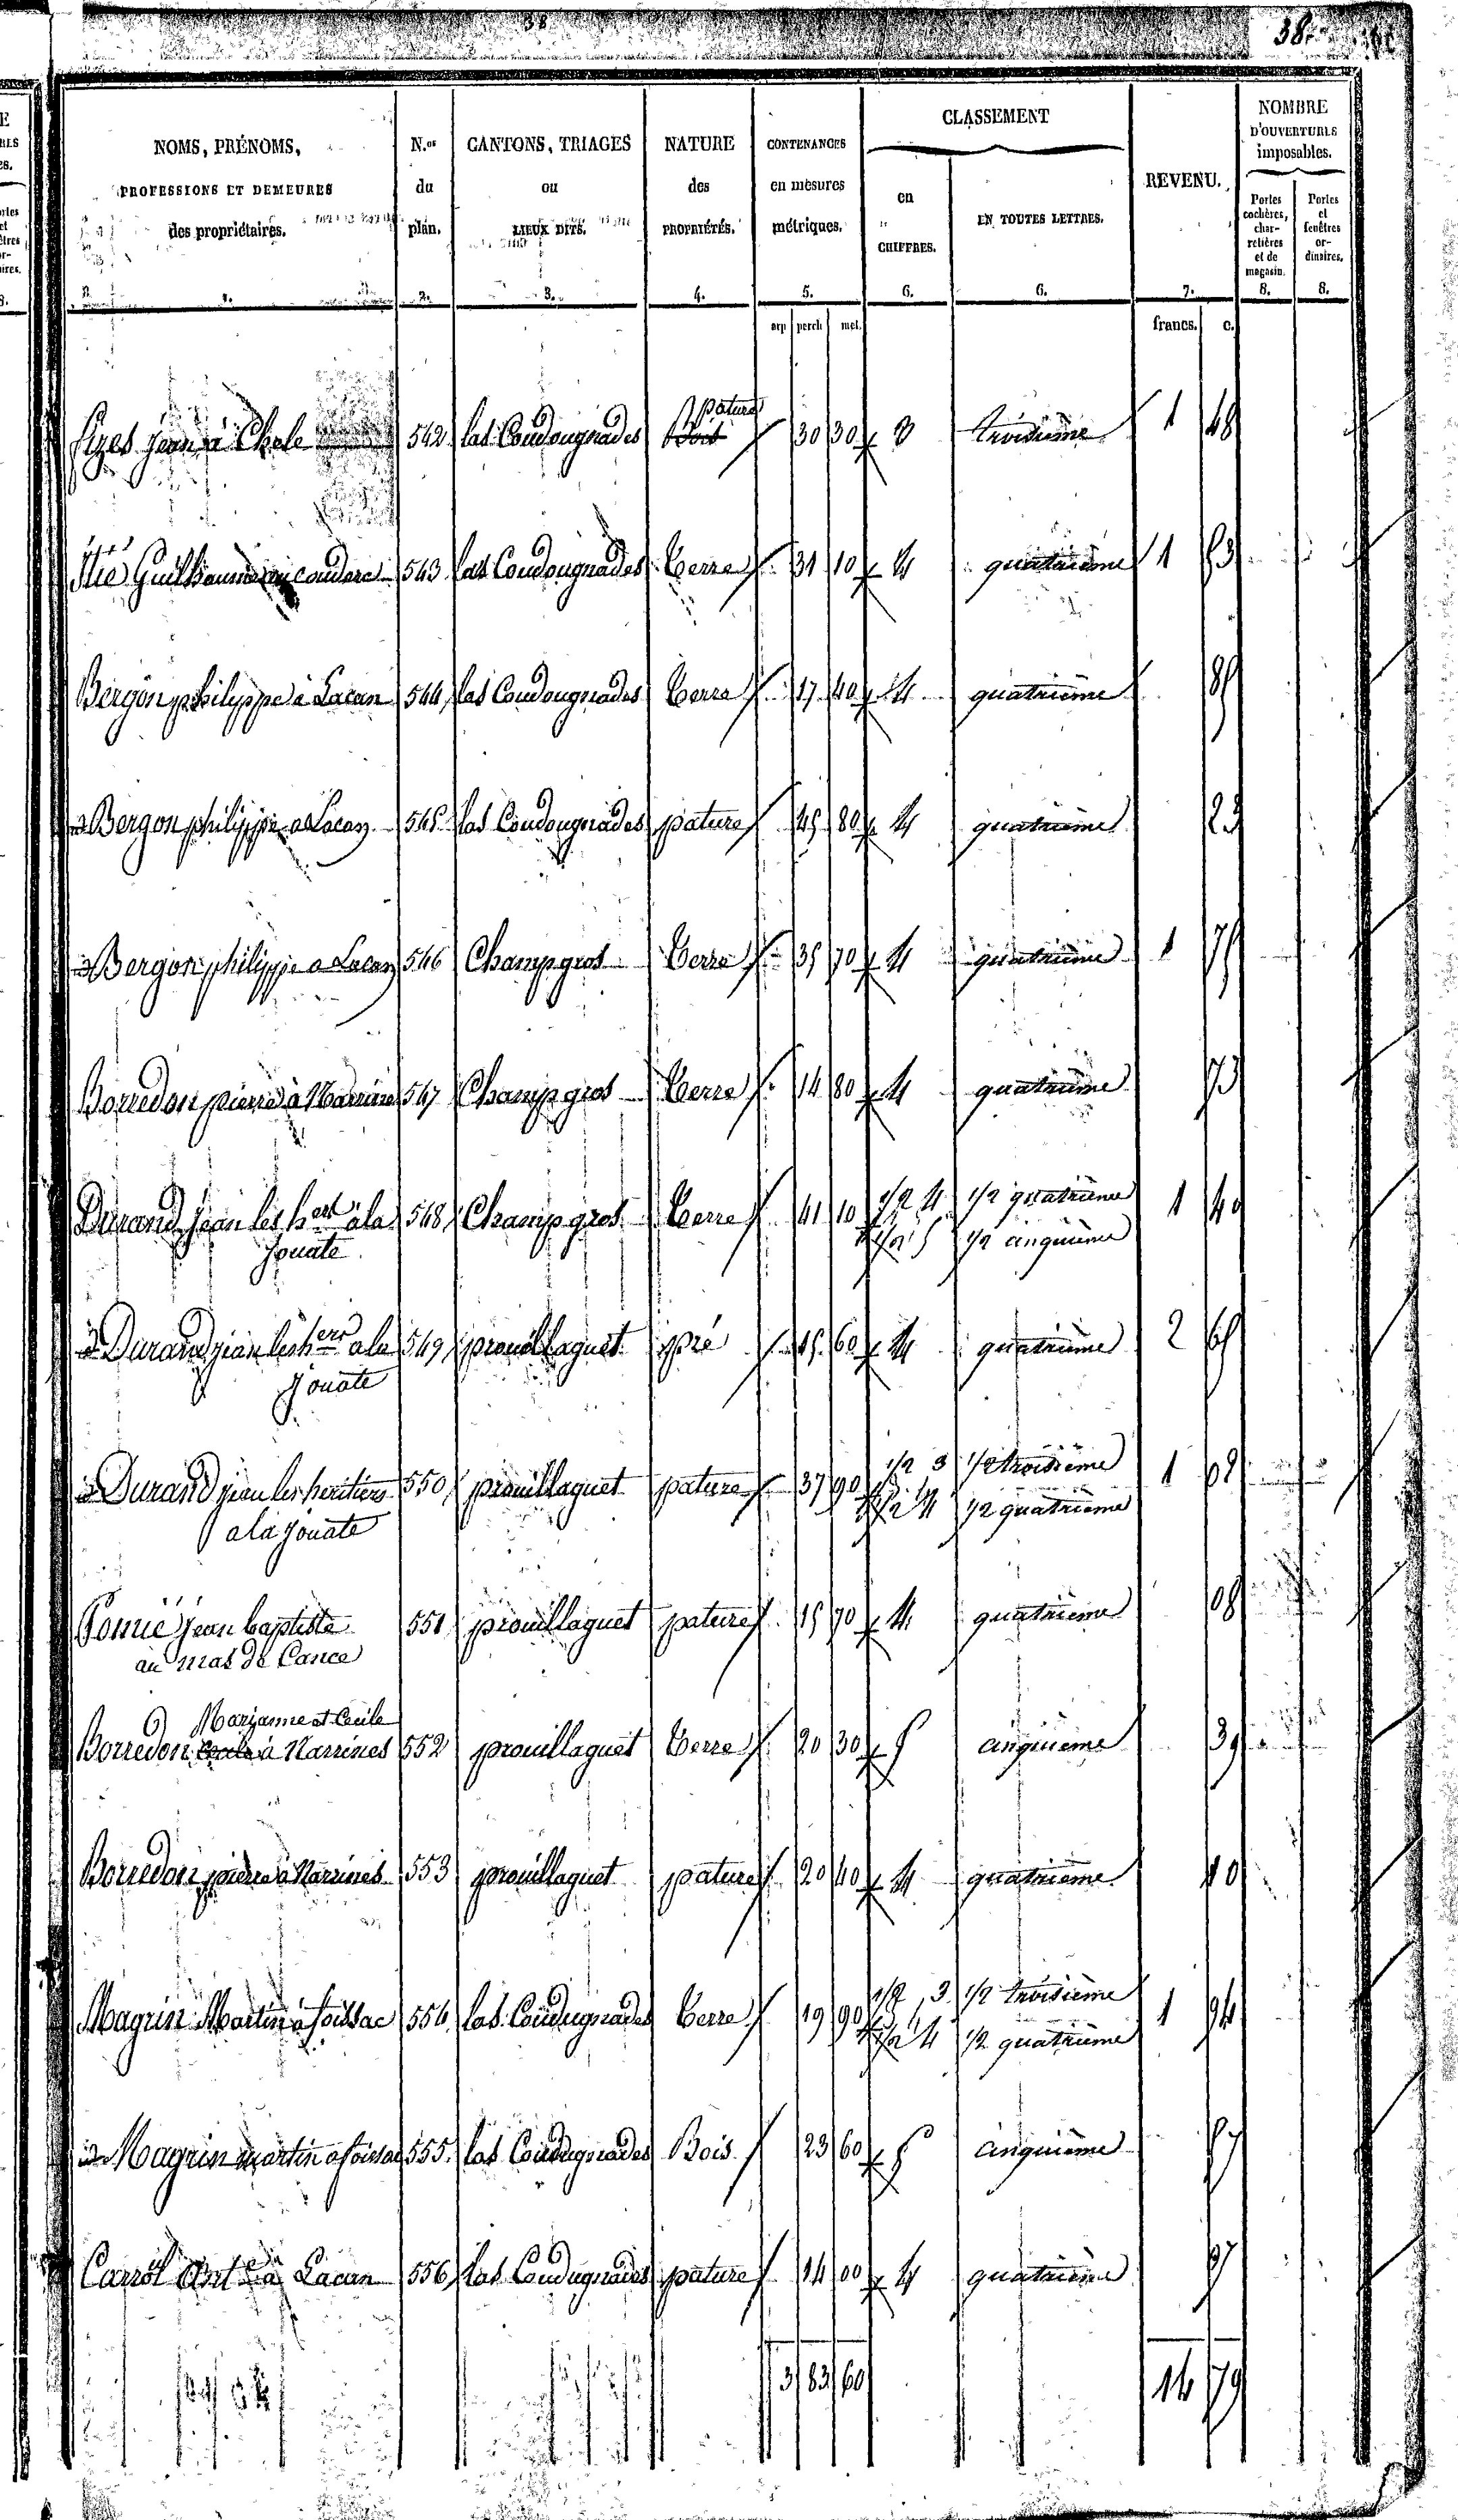 38
38.
NOMS, PRÉNOMS, PROFESSIONS ET DEMEURES des propriétaires. N.os du plan. CANTONS, TRIAGES ou LIEUX DITS. NATURE des PROPRIÉTÉS. CONTENANCES en mesures métriques. CLASSEMENT en CHIFFRES. EN TOUTES LETTRES. REVENU. NOMBRE D'OUVERTURES imposables. Portes cochères, charretières et de magasin. Portes et fenêtres ordinaires.
1. 2. 3. 4. 5. 6. 6. 7. 8. 8.
arp perch met. francs. c.
pature
jean à 542 las Coudougnades Bois 30 30 3 troisième 1 48
Guilhaume 543 las Coudougnades terre 31 10 4 quatrième 1 53
Bergon philippe à Lacan 544 las Coudougnades terre 17 40 4 quatrième 85
id Bergon philippe a Lacan 545 las Coudougnades pature 45 80 4 quatrième 23
id Bergon philippe a Lacan 546 Champ gros terre 35 70 4 quatrième 1 75
Borredon pierre à Narrines 547 Champ gros terre 14 80 4 quatrième 73
Durand jean les hers à la 548 Champ gros terre 41 10 1/2 4 1/2 quatrième 1 40
jonate 1/2 5 1/2 cinquième
id Durand jean les hers a la 549 prouillaguet pré 15 60 4 quatrième 2 65
jonate
id Durand jean les heritiers 550 prouillaguet pature 37 90 1/2 3 1/2 troisième 1 02
a la jonate 1/2 4 1/2 quatrième
jean baptiste 551 prouillaguet pature 15 70 4 quatrième 08
au mas de Cance
Marianne et Cecile
Borredon à Narrines 552 prouillaguet terre 20 30 5 cinquième 39
Borredon pierre à Narrines 553 prouillaguet pature 20 40 4 quatrième 10
Magrin Martin à foissac 554 las Coudugnades terre 19 90 1/2 3 1/2 troisième 1 94
1/2 4 1/2 quatrième
id Magrin martin a foissac 555 las Coudugnades Bois 23 60 5 cinquième 57
Ant à Lacan 556 las Coudugnades pature 14 00 4 quatrième 07
3 83 60 14 79